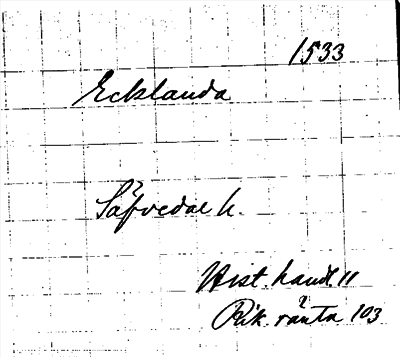 1533
Ecklanda
Säfvedal h.
Hist. handl. 11
Rik. ränta 103